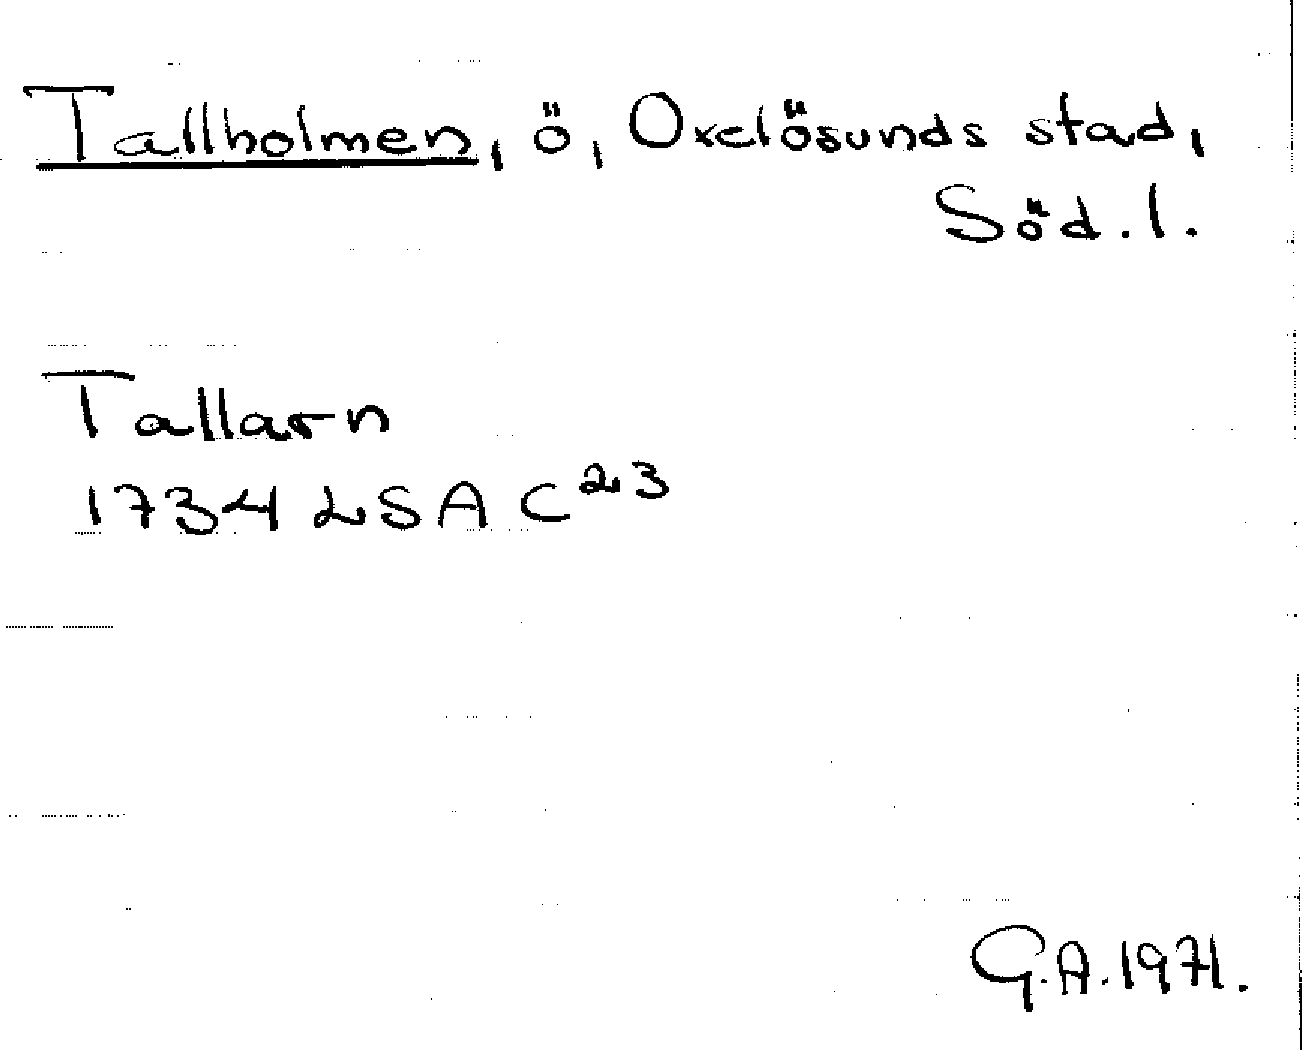 Tallholmen, ö, Oxelösunds stad,
Söd. l.
Tallarn
1734 LSA C²³
G.A. 1971.